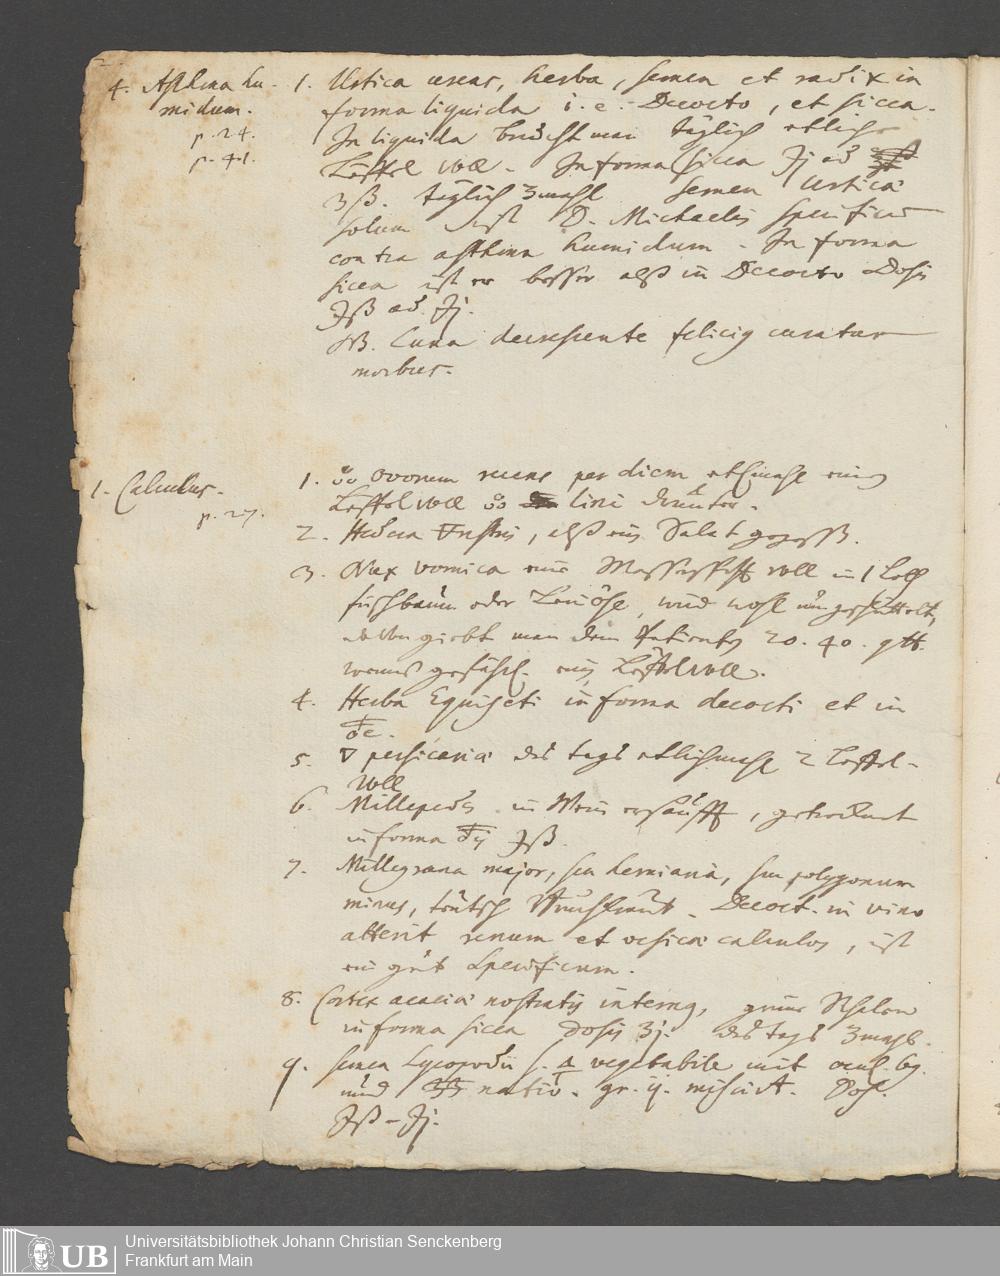 4. Asthma hu-
midum.
p. 24.
p. 41.
1. Urtica urens, herba, semen et radix in
forma liquida i. e. Decocto, et sicca.
In liquida braucht man täglich etliche
Löffel voll. In forma sicca ʒj ad
ʒß. täglich 3mahl semen Urticæ
solum ist D. Michaelis specificum
contra asthma humidum. In forma
sicca ist er besser alß in Decocto Dosis
℈ß ad ℈j.
NB. Luna decrescente felicig curatur
morbus.
1. Calculus.
p. 27.
1. ovorum recens per diem etlmahl ein
Löffel voll lini drunter.
2. Hedera ▽restris, alß ein Salat gegessen.
3. Nux vomica eine Messerspitz voll in 1 Loth
oder Leinöhl, und wohl umgeschüttelt,
giebt man dem Patienten 20. 40. gtt.
ein Löffel voll.
4. Herba Equiseti in forma decocti et in
5. ▽ persicariæ des tags etlichmahl 2 Löffel-
voll
6. Millepedes in Wein ersäufft, getrucknet
in forma ℈ß.
7. Millegrana major, seu herniaria, seu polygonum
minus, teutsch Bruchkraut. Decoct. in vino
atterit renum et vesicæ calculos, ist
ein gut Specificum.
8. Cortex acaciæ nostratis interna, grüne Schalen
in forma sicca Dosis ʒj. des tags 3mahl.
9. semen Lycopodii s. 🜍 vegetabile mit ocul. 69.
und nativ. gr. ij. miscirt. Dos.
℈ß – ℈j.
UB
Universitätsbibliothek Johann Christian Senckenberg
Frankfurt am Main